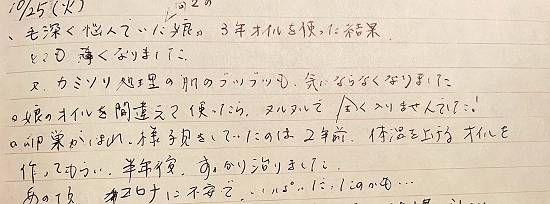 10/25(火)
、毛深く悩んでいた娘が 3年オイルを使った結果
とても 薄くなりました。
又、カミソリ処理の肌のブツブツも、気にならなくなりました
○娘のオイルを間違えて使ったら、ヌルヌルで 全く入りませんでした!
○卵巣がはれ、様子見をしていたのは 2年前、体温を上げるオイルを
作ってもらい、半年後、すっかり治りました。
あの頃、コロナに不安で、いっぱいだったのかも…